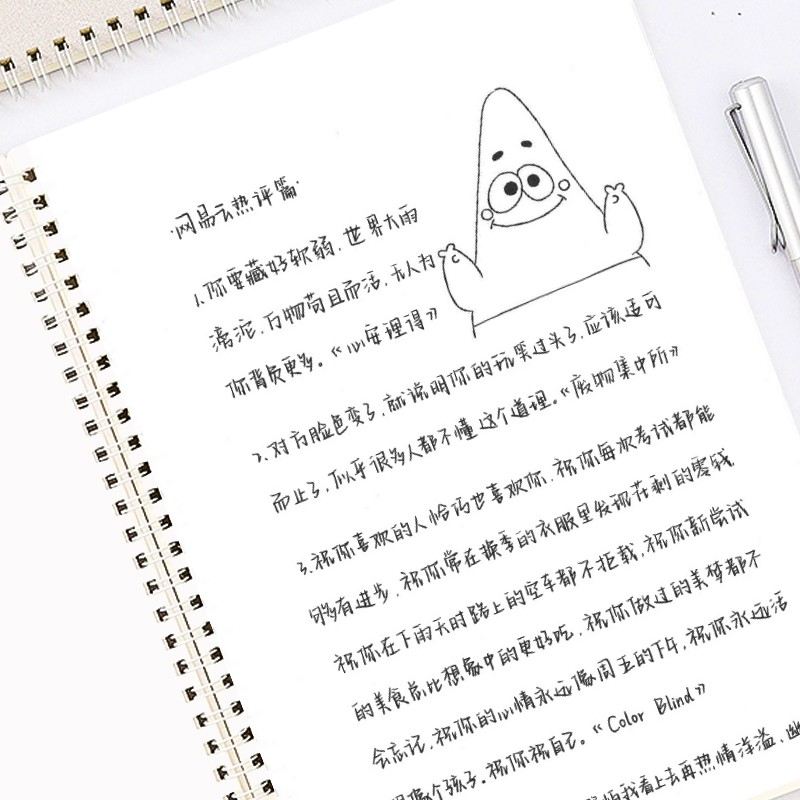 ·网易云热评篇·
1.你要藏好软弱,世界大雨
滂沱,万物苟且而活,无人为
你背负更多。《心安理得》
2.对方脸色变了,就说明你的玩笑过头了,应该适可
而止了,似乎很多人都不懂这个道理。《废物集中所》
3.祝你喜欢的人恰巧也喜欢你,祝你每次考试都能
够有进步,祝你常在换季的衣服里发现花剩的零钱,
祝你在下雨天时路上的空车都不拒载,祝你新尝试
的美食总比想象中的更好吃,祝你做过的美梦都不
会忘记,祝你的心情永远像周五的下午,祝你永远活
得像个孩子。祝你祝自己。《Color Blind》
怕我看上去再热情洋溢、幽